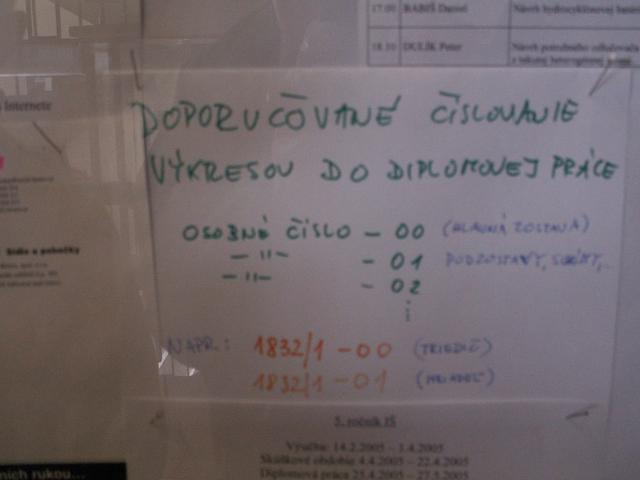 17:00 BABIŠ Daniel Návrh hydrocyklónovej
18.10 DULÍK Peter Návrh potrubného
Internete
DOPORUČOVANÉ ČÍSLOVANIE
VÝKRESOV DO DIPLOMOVEJ PRÁCE
OSOBNÉ ČÍSLO – 00 (HLAVNÁ ZOSTAVA)
–"– – 01 PODZOSTAVY,
–"– – 02
Sídlo a pobočky
NAPR.: 1832/1 – 00 (TRIEDIČ)
1832/1 – 01
5. ročník IŠ
Výučba: 14.2.2005 – 1.4.2005
Skúškové obdobie 4.4.2005 – 22.4.2005
Diplomová práca 25.4.2005 – 27.5.2005
rukou...